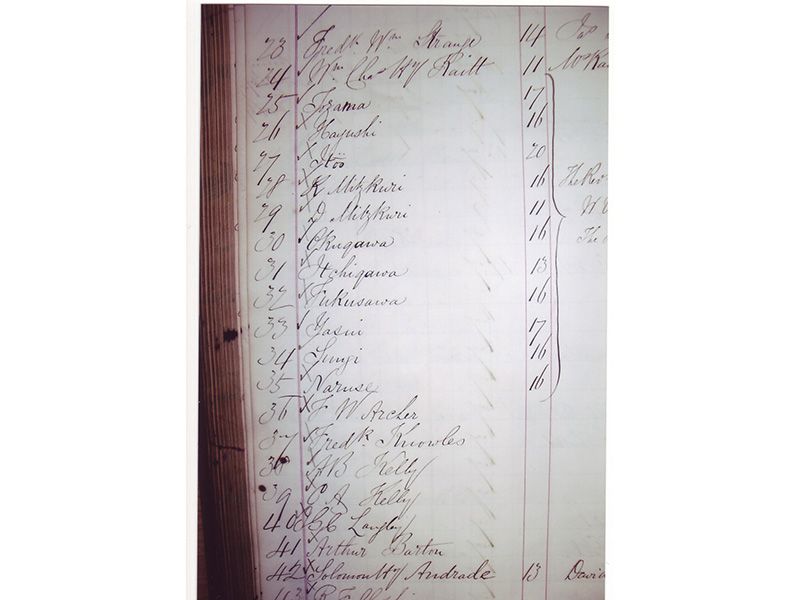 23 Fredk Wm Strange 14 Jas
24 Wm Chas Hy Raitt 11 McKa
25 Tozama 17
26 Hayashi 16
27 Itöo 20
28 K Mitzkuri 16 The Rev
29 D Mitzkuri 11 W
30 Okugawa 16 The
31 Itchigawa 13
32 Fukusawa 16
33 Yasui 17
34 16
35 Naruse 16
36 F W Archer
37 Fredk Knowles
38 A B Kelly
39 C A Kelly
40 C Langley
41 Arthur Barton
42 Solomon Hy Andrade 13 David
43 R